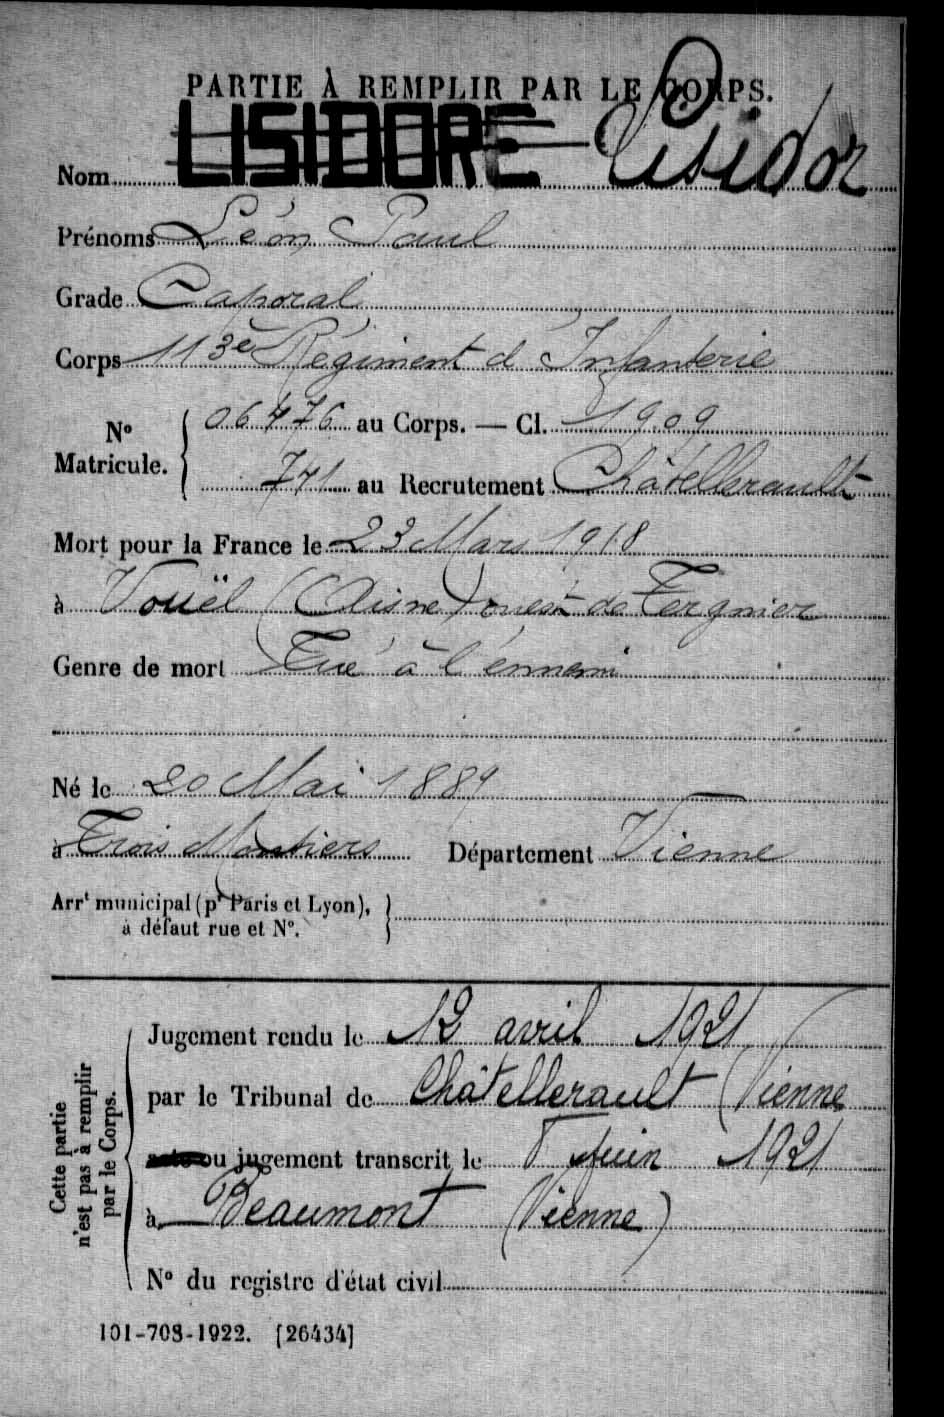 PARTIE À REMPLIR PAR LE CORPS.
Nom LISIDORE Lisidor
Prénoms Léon Paul
Grade Caporal
Corps 113è Régiment d'Infanterie
N° Matricule. 06476 au Corps. — Cl. 1909
741 au Recrutement Châtellerault
Mort pour la France le 23 Mars 1918
à Vouël (Aisne) ouest de Tergnier
Genre de mort Tué à l'ennemi
Né le 20 Mai 1889
à Trois Moutiers Département Vienne
Arrt municipal (pr Paris et Lyon),
à défaut rue et N°.
Cette partie
n'est pas à remplir
par le Corps.
Jugement rendu le 12 avril 1921
par le Tribunal de Châtellerault (Vienne
ou jugement transcrit le 8 Juin 1921
à Beaumont (Vienne)
N° du registre d'état civil
101-708-1922. [26434]